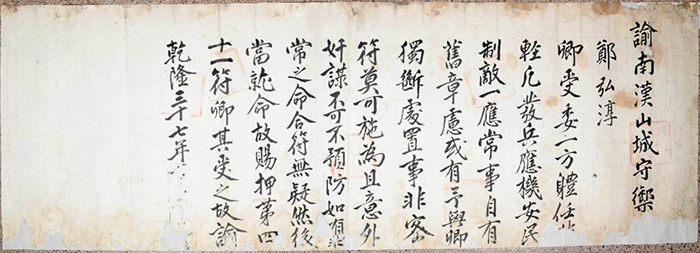 諭南漢山城守禦
鄭弘淳
卿受委一方體任非
輕凡發兵應機安民
制敵一應常事自有
舊章慮或有予與卿
獨斷處置事非密
符莫可施為且意外
奸謀不可不預防如有非
常之命合符無疑然後
當就命故賜押第四
十一符卿其受之故諭
乾隆三十七年